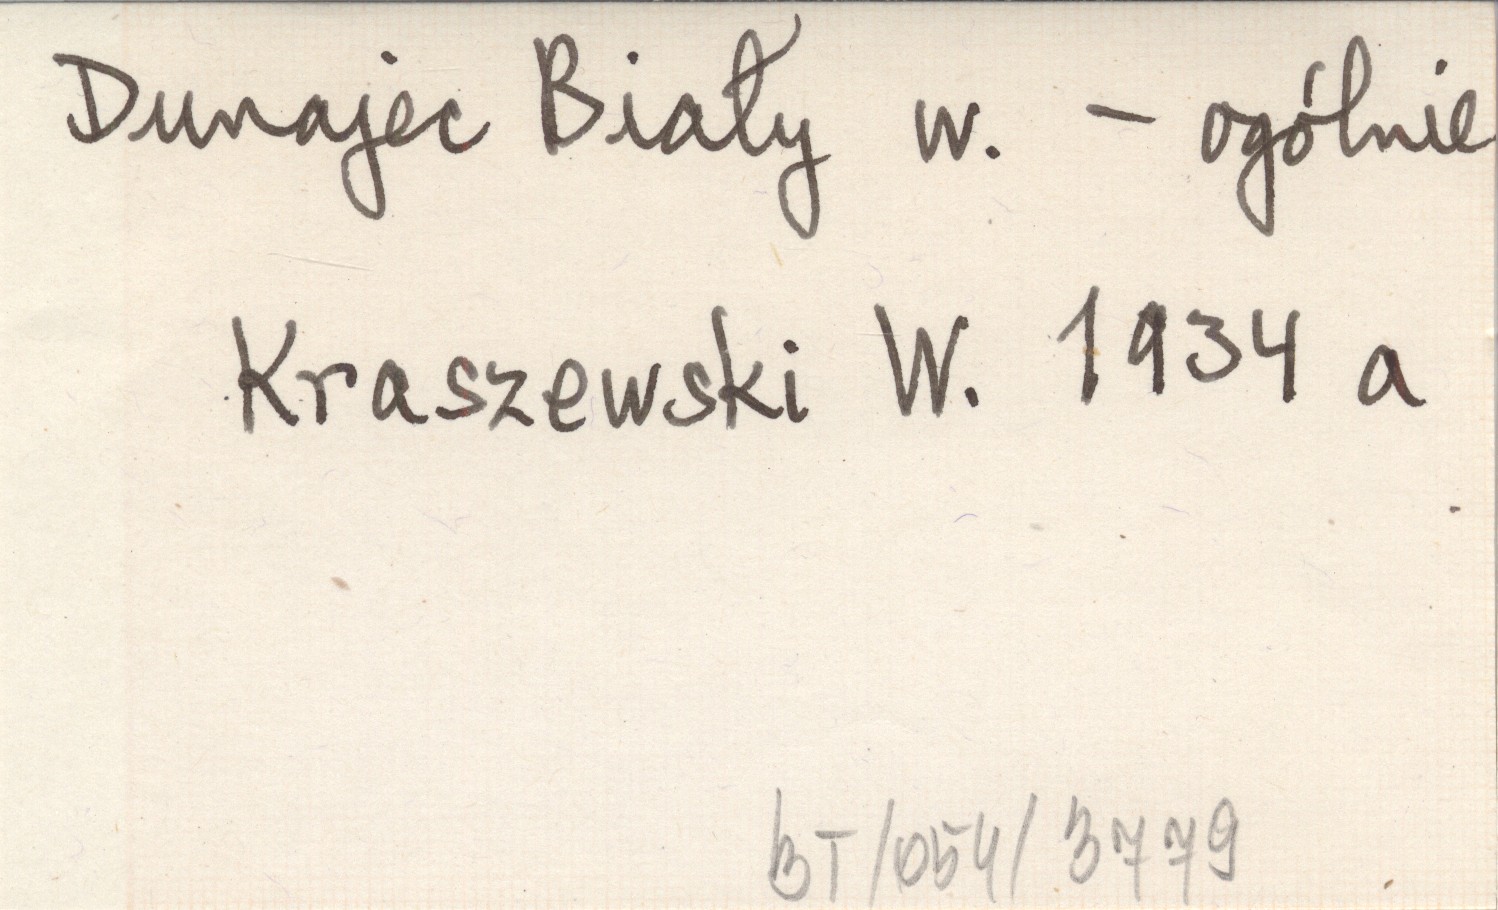 Dunajec Biały w. - ogólnie
Kraszewski W. 1934 a
BT/054/3779